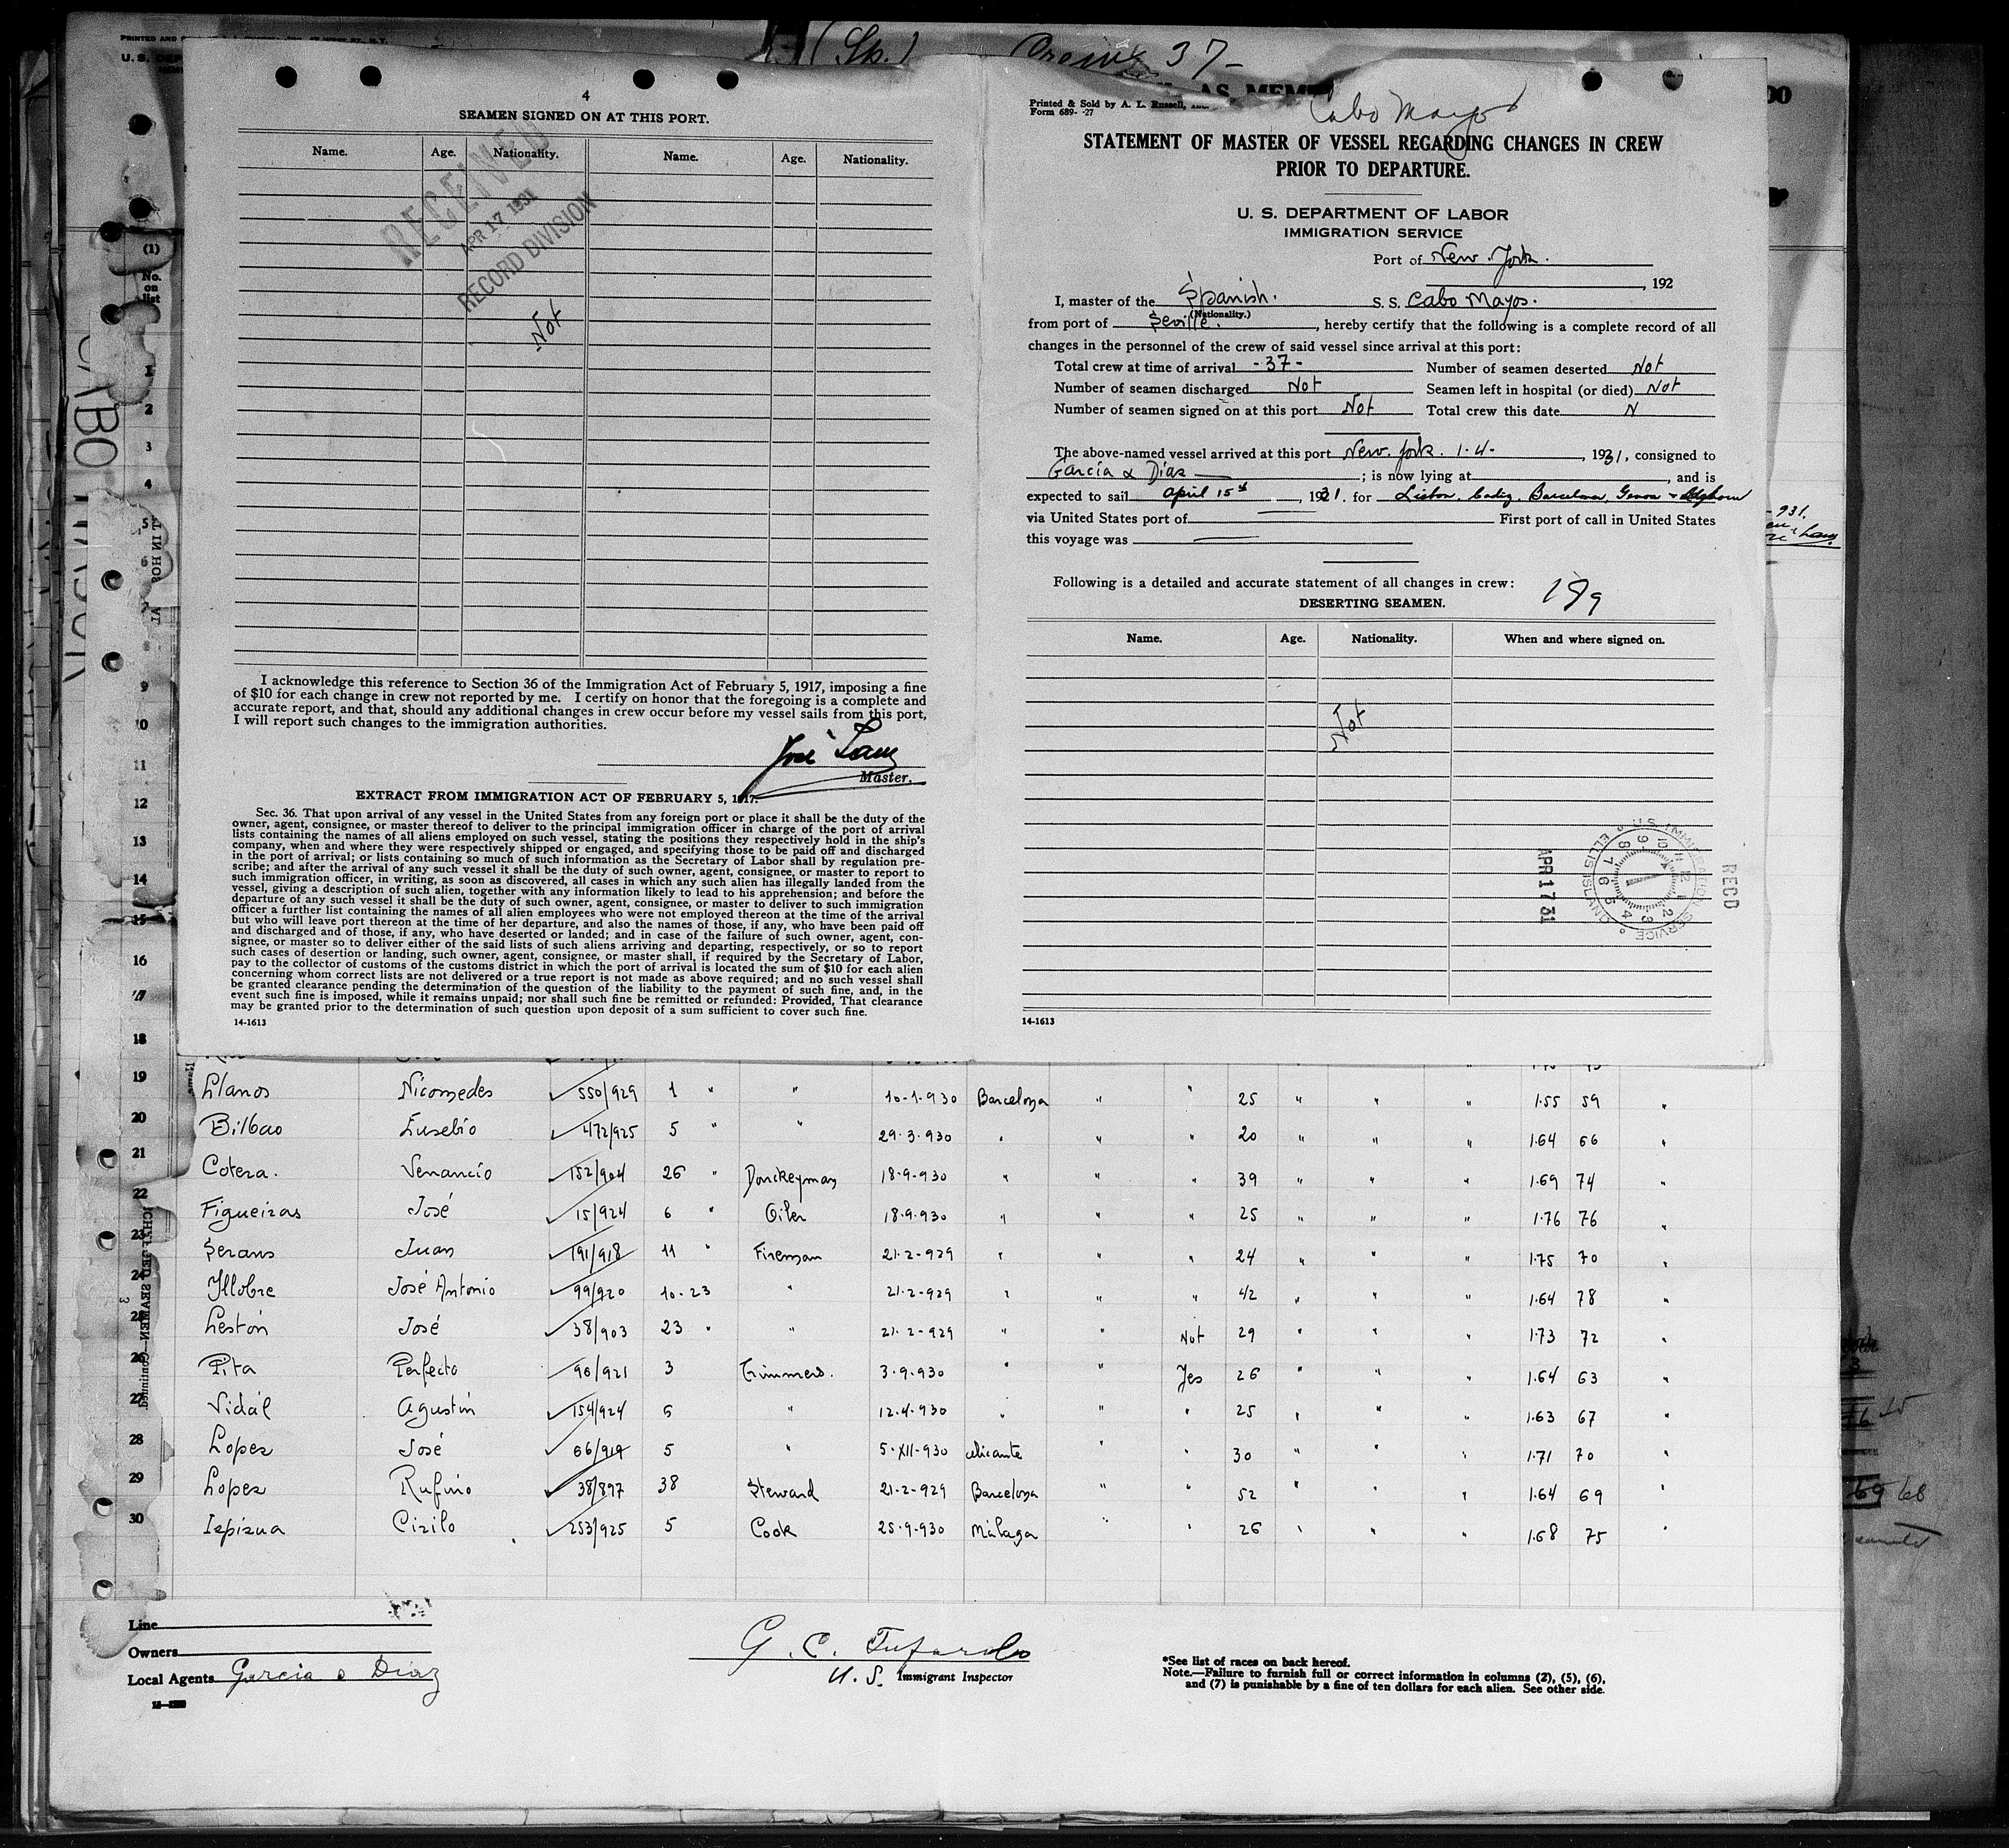 (Sp.) Crew 37-
4
SEAMEN SIGNED ON AT THIS PORT.
Name. Age. Nationality. Name. Age. Nationality.
RECEIVED
APR 17 1931
RECORD DIVISION
Not
I acknowledge this reference to Section 36 of the Immigration Act of February 5, 1917, imposing a fine
of $10 for each change in crew not reported by me. I certify on honor that the foregoing is a complete and
accurate report, and that, should any additional changes in crew occur before my vessel sails from this port,
I will report such changes to the immigration authorities.
José
Master.
EXTRACT FROM IMMIGRATION ACT OF FEBRUARY 5, 1917.
Sec. 36. That upon arrival of any vessel in the United States from any foreign port or place it shall be the duty of the
owner, agent, consignee, or master thereof to deliver to the principal immigration officer in charge of the port of arrival
lists containing the names of all aliens employed on such vessel, stating the positions they respectively hold in the ship's
company, when and where they were respectively shipped or engaged, and specifying those to be paid off and discharged
in the port of arrival; or lists containing so much of such information as the Secretary of Labor shall by regulation pre-
scribe; and after the arrival of any such vessel it shall be the duty of such owner, agent, consignee, or master to report to
such immigration officer, in writing, as soon as discovered, all cases in which any such alien has illegally landed from the
vessel, giving a description of such alien, together with any information likely to lead to his apprehension; and before the
departure of any such vessel it shall be the duty of such owner, agent, consignee, or master to deliver to such immigration
officer a further list containing the names of all alien employees who were not employed thereon at the time of the arrival
but who will leave port thereon at the time of her departure, and also the names of those, if any, who have been paid off
and discharged and of those, if any, who have deserted or landed; and in case of the failure of such owner, agent, con-
signee, or master so to deliver either of the said lists of such aliens arriving and departing, respectively, or so to report
such cases of desertion or landing, such owner, agent, consignee, or master shall, if required by the Secretary of Labor,
pay to the collector of customs of the customs district in which the port of arrival is located the sum of $10 for each alien
concerning whom correct lists are not delivered or a true report is not made as above required; and no such vessel shall
be granted clearance pending the determination of the question of the liability to the payment of such fine, and, in the
event such fine is imposed, while it remains unpaid; nor shall such fine be remitted or refunded: Provided, That clearance
may be granted prior to the determination of such question upon deposit of a sum sufficient to cover such fine.
14-1613
Printed & Sold by A. L. Russell,
Form 689- -27
Cabo Mayor
STATEMENT OF MASTER OF VESSEL REGARDING CHANGES IN CREW
PRIOR TO DEPARTURE.
U. S. DEPARTMENT OF LABOR
IMMIGRATION SERVICE
Port of New York.
, 192
I, master of the Spanish. S. S. Cabo Mayor.
(Nationality.)
from port of Seville. , hereby certify that the following is a complete record of all
changes in the personnel of the crew of said vessel since arrival at this port:
Total crew at time of arrival -37- Number of seamen deserted Not
Number of seamen discharged Not Seamen left in hospital (or died) Not
Number of seamen signed on at this port Not Total crew this date N
The above-named vessel arrived at this port New York. 1-4- , 1931, consigned to
Garcia & Diaz ; is now lying at , and is
expected to sail April 15th , 1931. for Lisbon, Cadiz, Barcelona, Genoa & Leghorn
via United States port of First port of call in United States
this voyage was
Following is a detailed and accurate statement of all changes in crew: 189
DESERTING SEAMEN.
Name. Age. Nationality. When and where signed on.
Not
U. S. IMMIGRATION SERVICE ELLIS ISLAND
RECD
APR 17 31
14-1613
(1)
No.
on
list
1
2
3
4
5
6
7
8
9
10
11
12
13
14
15
16
17
18
19 Llanos Nicomedes 550/929 1 " " 10-1-930 Barcelona " " 25 " " " 1.55 59 "
20 Bilbao Eusebio 472/925 5 " " 29-3-930 " " " 20 " " " 1.64 66 "
21 Cotera. Venancio 152/904 26 " Donckeyman 18-9-930 " " " 39 " " " 1.69 74 "
22 Figueiras José 15/924 6 " Oiler 18-9-930 " " " 25 " " " 1.76 76 "
23 Serans Juan 191/918 11 " Fireman 21-2-929 " " " 24 " " " 1.75 70 "
24 Yllobre José Antonio 99/920 10-23 " 21-2-929 " " " 42 " " " 1.64 78 "
25 Lestón José 38/903 23 " " 21-2-929 " " Not 29 " " " 1.73 72 "
26 Pita Perfecto 90/921 3 Trimmers. 3-9-930 " " Yes 26 " " " 1.64 63 "
27 Vidál Agustin 154/924 6 " 12-4-930 " " " 25 " " " 1.63 67 "
28 Lopez José 66/919 5 " 5-XII-930 Alicante " " 30 " " " 1.71 70 "
29 Lopez Rufino 38/897 38 Steward 21-2-929 Barcelona " " 52 " " " 1.64 69 "
30 Ispizua Cirilo 253/925 5 Cook 25-9-930 Málaga " " 26 " " " 1.68 75 "
Line
Owners
Local Agents Garcia & Diaz
G. C. Tufarolo
U. S. Immigrant Inspector
*See list of races on back hereof.
Note.—Failure to furnish full or correct information in columns (2), (5), (6),
and (7) is punishable by a fine of ten dollars for each alien. See other side.